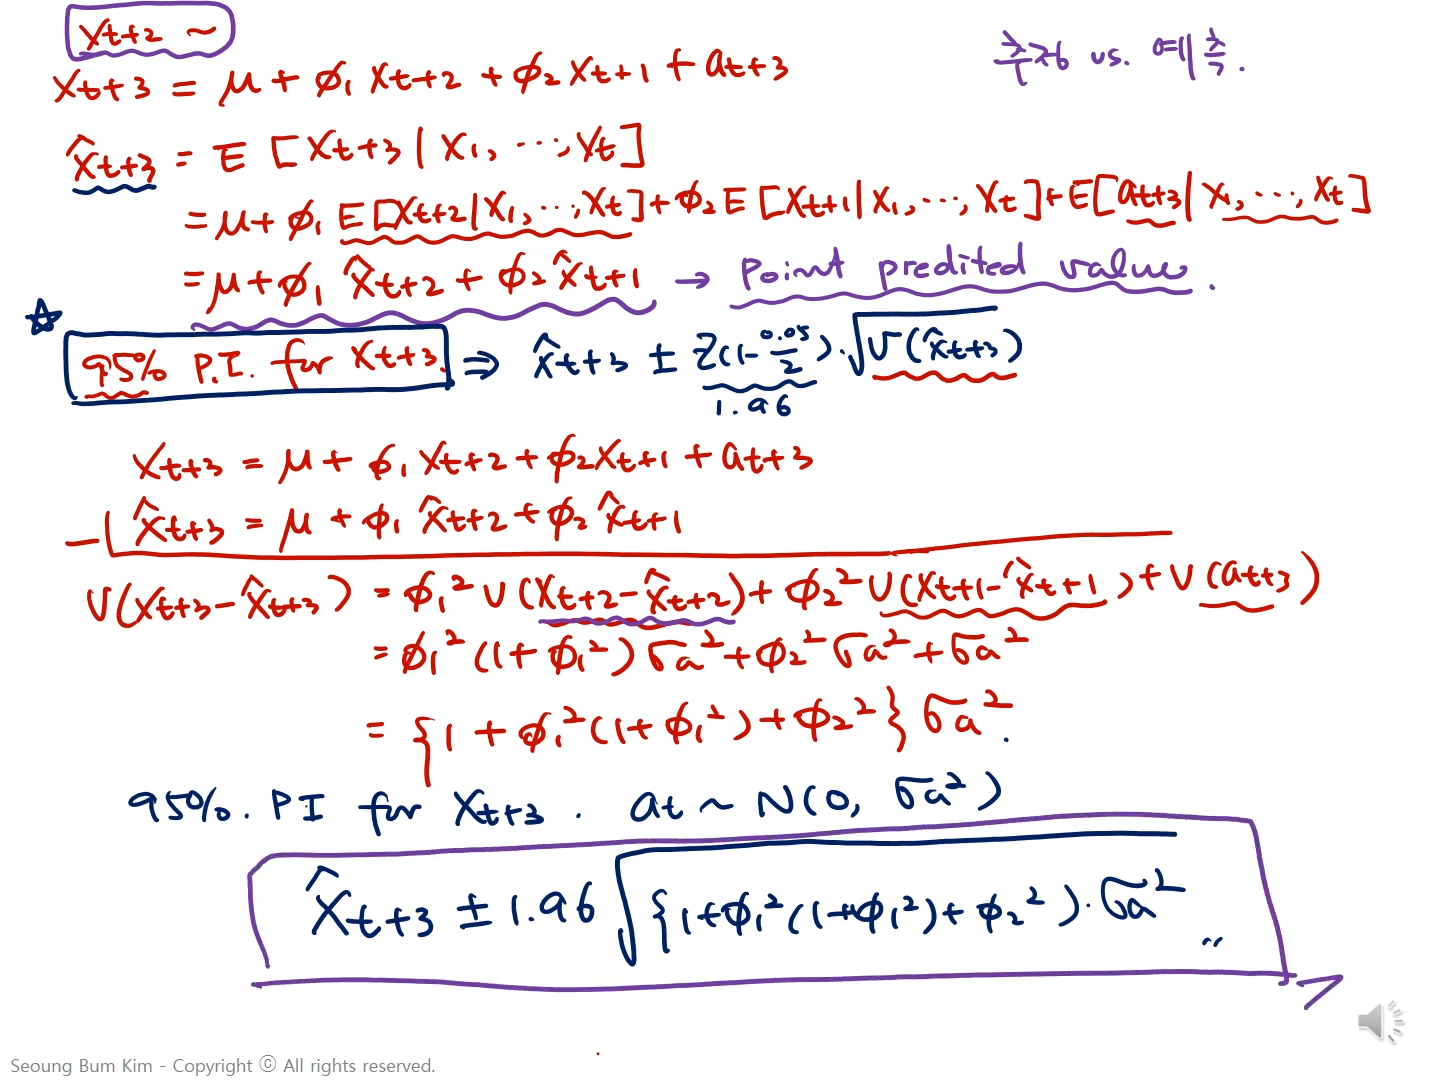 Xt+2 ~
추정 vs. 예측.
Xt+3 = μ + φ₁ Xt+2 + φ₂ Xt+1 + at+3
X̂t+3 = E [Xt+3 | X₁, ⋯, Xt]
= μ + φ₁ E[Xt+2 | X₁, ⋯, Xt] + φ₂ E [Xt+1 | X₁, ⋯, Xt] + E[at+3 | X₁, ⋯, Xt]
= μ + φ₁ X̂t+2 + φ₂ X̂t+1 → Point predited value.
☆ 95% P.I. for Xt+3. ⇒ X̂t+3 ± Z(1-0.05/2)·√V(X̂t+3)
1.96
Xt+3 = μ + φ₁ Xt+2 + φ₂ Xt+1 + at+3
-| X̂t+3 = μ + φ₁ X̂t+2 + φ₂ X̂t+1
V(Xt+3 - X̂t+3) = φ₁² V(Xt+2 - X̂t+2) + φ₂² V(Xt+1 - X̂t+1) + V(at+3)
= φ₁² (1+φ₁²) σa² + φ₂² σa² + σa²
= {1 + φ₁² (1+φ₁²) + φ₂²} σa².
95%. PI for Xt+3. at ~ N(0, σa²)
X̂t+3 ± 1.96 √{1+φ₁²(1+φ₁²)+φ₂²)·σa²
Seoung Bum Kim - Copyright ⓒ All rights reserved.